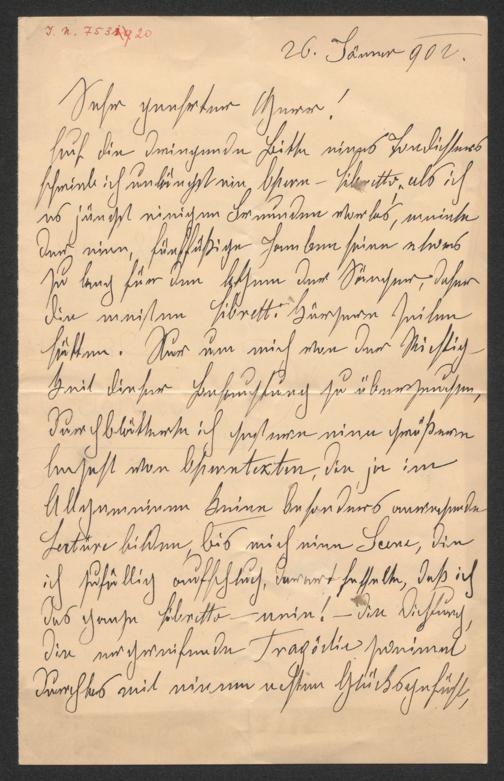 J. N. 753 20
26. Jänner 902.
Sehr geehrter Herr!
Auf die dringende Bitte eines Tondichters
schrieb ich unlängst ein Opern-Libretto, als ich
es jüngst einigen Freunden vorlas, meinte
der eine, fünffüßige Jamben seien etwas
zu lang für den Athem der Sänger, daher
die meisten Libretti kürzere Zeilen
hätten. Nur um mich von der Richtig-
keit dieser Behauptung zu überzeugen,
durchblätterte ich gestern eine größere
Anzahl von Operntexten, die ja im
Allgemeinen keine besonders anregende
Lectüre bilden, bis mich eine Scene, die
ich zufällig aufschlug, derart fesselte, daß ich
das ganze Libretto – nein! – die Dichtung,
die ergreifende Tragödie zweimal
durchlas mit einem echten Glücksgefühl,